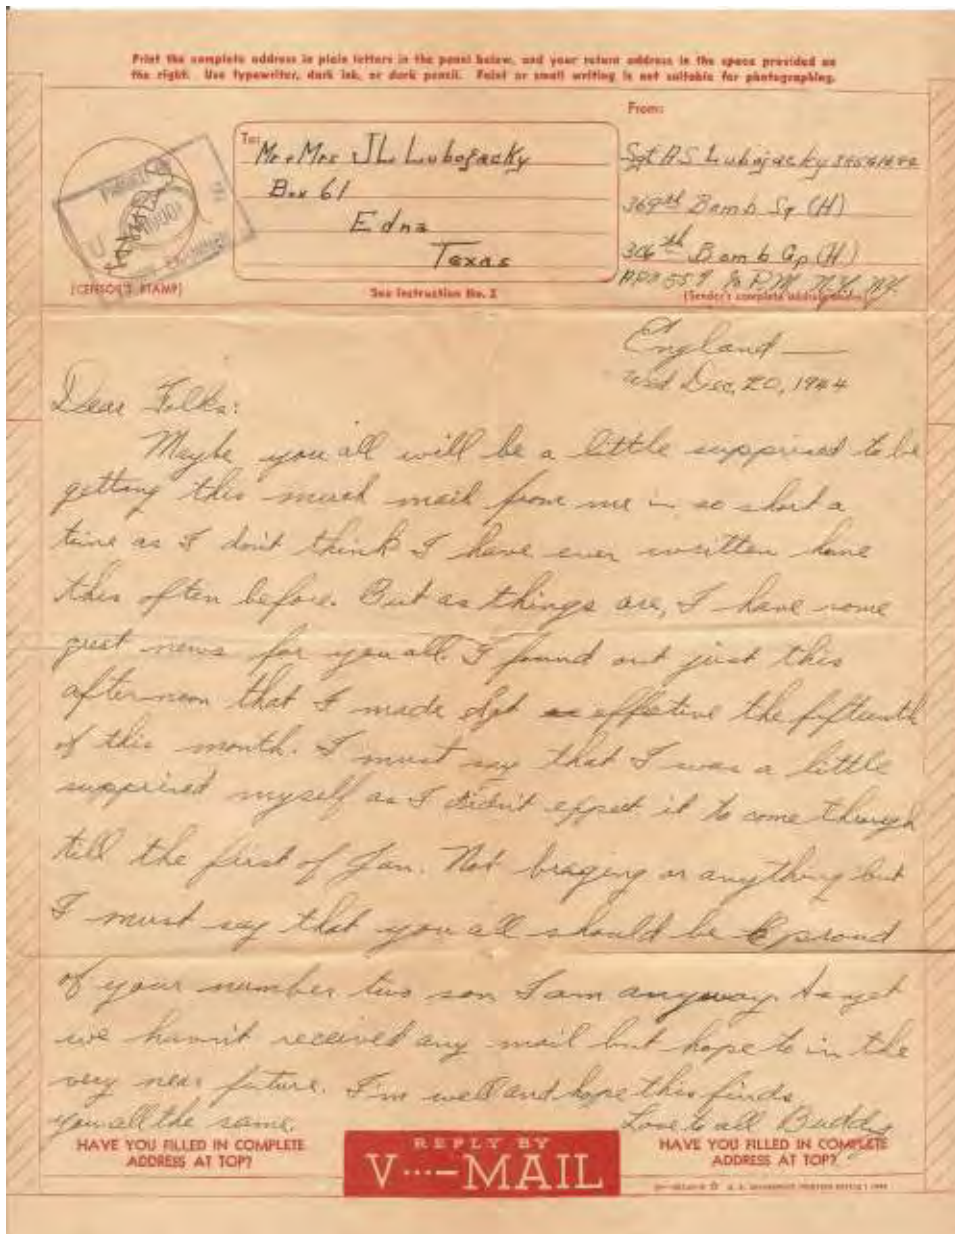 Print the complete address in plain letters in the panel below, and your return address in the space provided on
the right. Use typewriter, dark ink, or dark pencil. Faint or small writing is not suitable for photographing.
From:
To:
Mr + Mrs J L Lubojacky
Box 61
Edna
Texas
Sgt A S Lubojacky
369th Bomb Sq (H)
306th Bomb Gp (H)
APO 557 % P.M. N.Y. N.Y.
(CENSOR'S STAMP)
See Instruction No. 2
(Sender's complete address above)
England
Wed Dec, 20, 1944
Dear Folks:
Maybe you all will be a little supprised to be
getting this much mail from me in so short a
time as I don't think I have ever written home
this often before. But as things are, I have some
great news for you all. I found out just this
afternoon that I made Sgt effective the fifteenth
of this month. I must say that I was a little
supprised myself as I didn't expect it to come through
till the first of Jan. Not braging or anything but
I must say that you all should be proud
of your number two son I am anyway. As yet
we havn't received any mail but hope to in the
very near future. I'm well and hope this finds
you all the same.
Love to all Buddy
HAVE YOU FILLED IN COMPLETE
ADDRESS AT TOP?
REPLY BY
V···—MAIL
HAVE YOU FILLED IN COMPLETE
ADDRESS AT TOP?